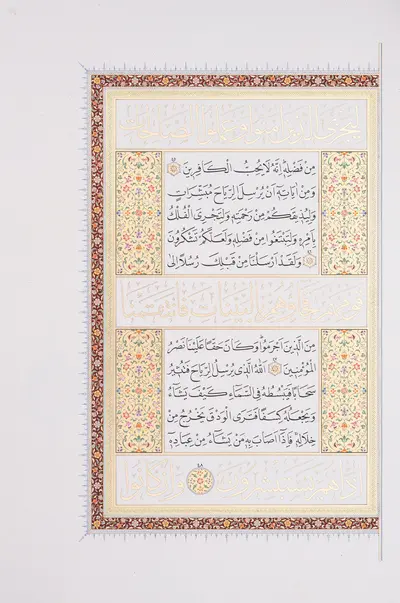 لِيَجْزِيَ الَّذِينَ اٰمَنُوا وَعَمِلُوا الصَّالِحَاتِ
مِنْ فَضْلِهٖ اِنَّهُ لَا يُحِبُّ الْكَافِرِينَ
وَمِنْ اٰيَاتِهٖ اَنْ يُرْسِلَ الرِّيَاحَ مُبَشِّرَاتٍ
وَلِيُذِيقَكُمْ مِنْ رَحْمَتِهٖ وَلِتَجْرِيَ الْفُلْكُ
بِاَمْرِهٖ وَلِتَبْتَغُوا مِنْ فَضْلِهٖ وَلَعَلَّكُمْ تَشْكُرُونَ
وَلَقَدْ اَرْسَلْنَا مِنْ قَبْلِكَ رُسُلًا اِلٰى
قَوْمِهِمْ فَجَاؤُهُمْ بِالْبَيِّنَاتِ فَانْتَقَمْنَا
مِنَ الَّذِينَ اَجْرَمُوا وَكَانَ حَقًّا عَلَيْنَا نَصْرُ
الْمُؤْمِنِينَ اَللّٰهُ الَّذِي يُرْسِلُ الرِّيَاحَ فَتُثِيرُ
سَحَابًا فَيَبْسُطُهُ فِي السَّمَاءِ كَيْفَ يَشَاءُ
وَيَجْعَلُهُ كِسَفًا فَتَرَى الْوَدْقَ يَخْرُجُ مِنْ
خِلَالِهٖ فَاِذَا اَصَابَ بِهٖ مَنْ يَشَاءُ مِنْ عِبَادِهٖ
اِذَا هُمْ يَسْتَبْشِرُونَ وَاِنْ كَانُوا